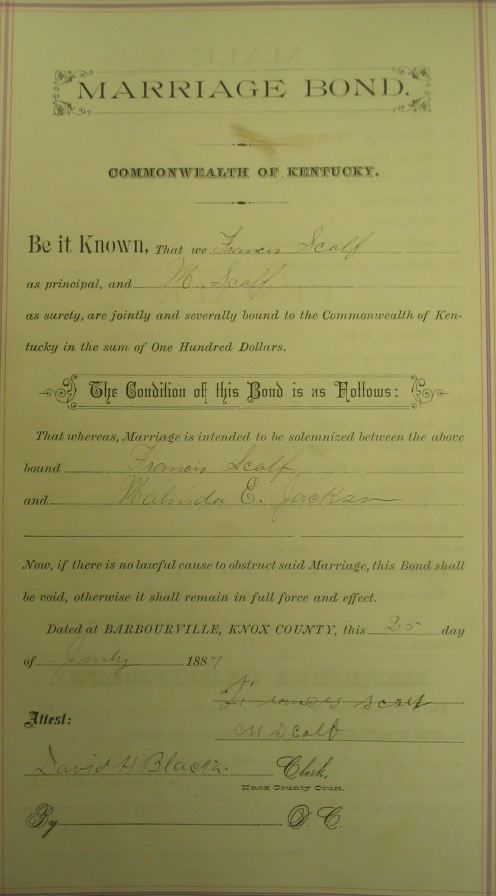 MARRIAGE BOND.
COMMONWEALTH OF KENTUCKY.
Be it Known, That we Francis Scalf
as principal, and M. Scalf
as surety, are jointly and severally bound to the Commonwealth of Ken-
tucky in the sum of One Hundred Dollars.
The Condition of this Bond is as Follows:
That whereas, Marriage is intended to be solemnized between the above
bound Francis Scalf
and Malinda E. Jackson
Now, if there is no lawful cause to obstruct said Marriage, this Bond shall
be void, otherwise it shall remain in full force and effect.
Dated at BARBOURVILLE, KNOX COUNTY, this 25 day
of July 1887
Francis Scalf
Attest:
M Scalf
David H Black Clerk,
Knox County Court.
By D. C.